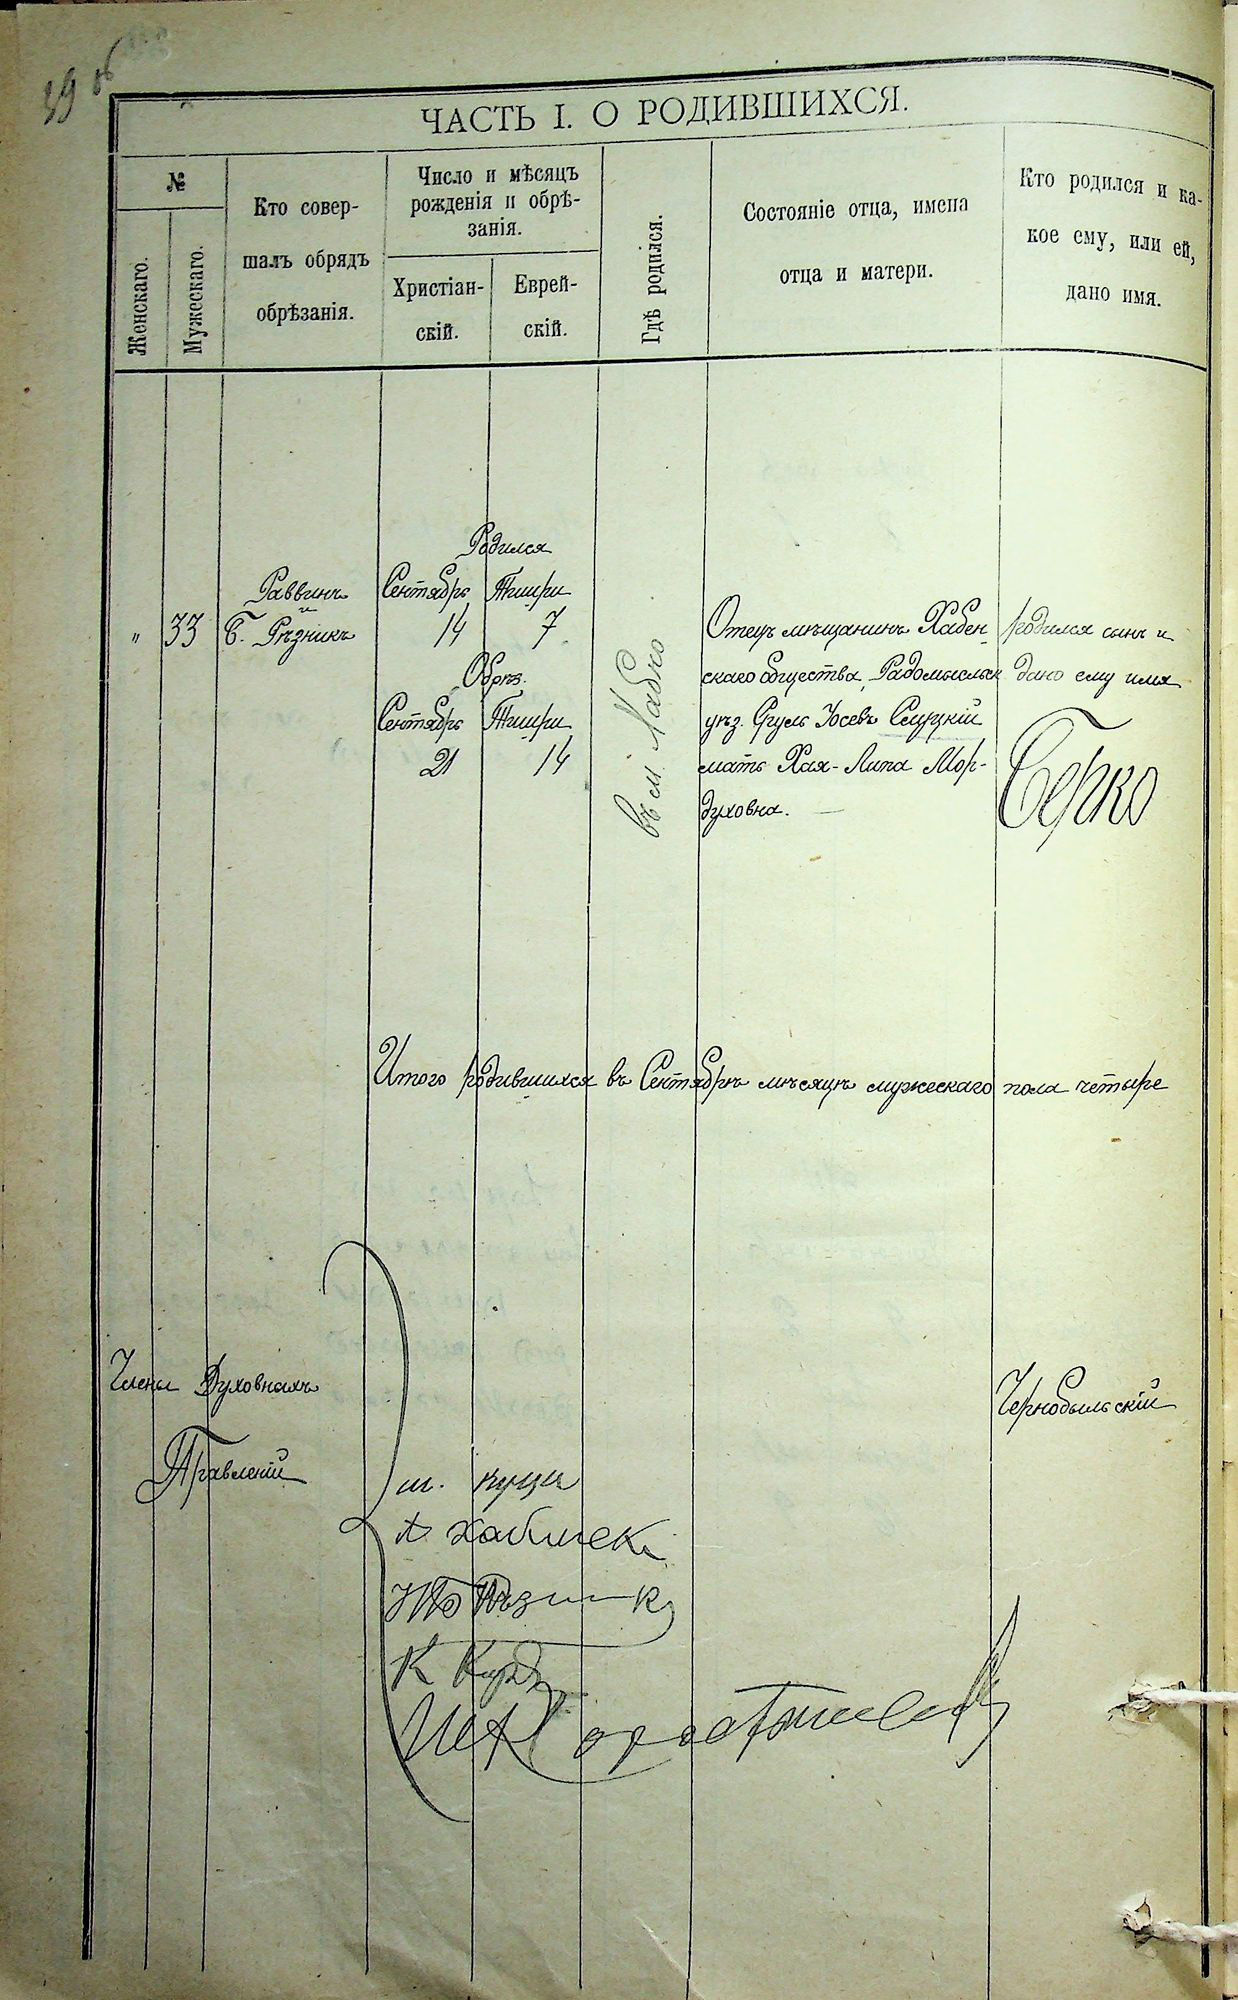 39 об
ЧАСТЬ I. О РОДИВШИХСЯ.
№
Женскаго.
Мужескаго.
Кто совер-
шалъ обрядъ
обрѣзанія.
Число и мѣсяцъ
рожденія и обрѣ-
занія.
Христіан-
скій.
Еврей-
скій.
Гдѣ родился.
Состояніе отца, имена
отца и матери.
Кто родился и ка-
кое ему, или ей,
дано имя.
"
33
Раввинъ
и
Б. Рѣзникъ
Родился
Сентябрь Тишри
14 7
Обрѣз.
Сентябрь Тишри
21 14
въ м.
Отецъ мѣщанинъ Хабен-
скаго общества, Радомысльск
уѣз. Сруль Іосевъ Слуцкій
мать Хая-Липа Мор-
духовна.
родился сынъ и
дано ему имя
Берко
Итого родившихся въ Сентябрѣ мѣсяцѣ мужескаго пола четыре
Члены Духовныхъ
Правленій
Чернобыльскій